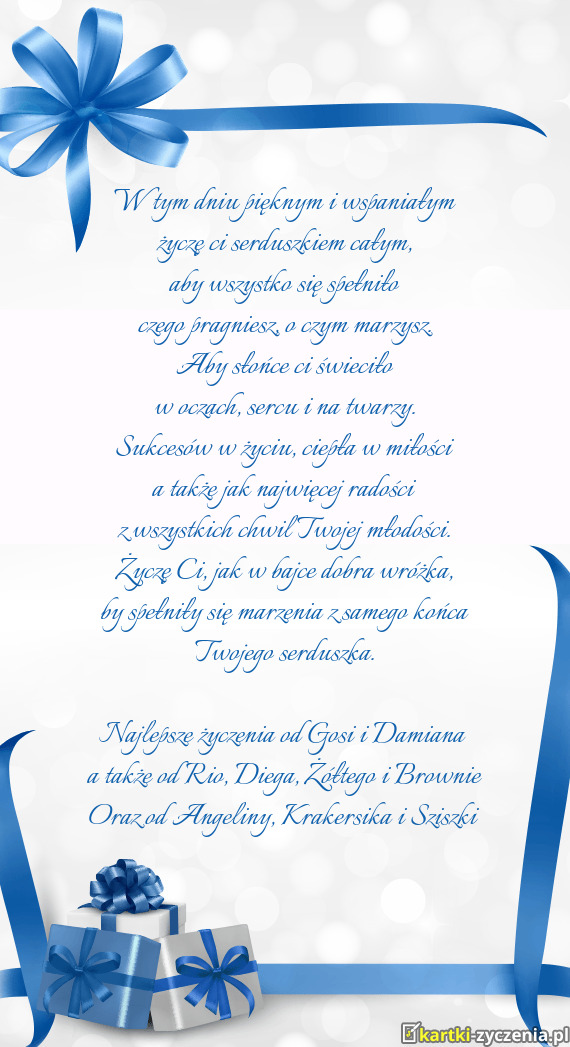 W tym dniu pięknym i wspaniałym
życzę ci serduszkiem całym,
aby wszystko się spełniło
czego pragniesz, o czym marzysz.
Aby słońce ci świeciło
w oczach, sercu i na twarzy.
Sukcesów w życiu, ciepła w miłości
a także jak najwięcej radości
z wszystkich chwil Twojej młodości.
Życzę Ci, jak w bajce dobra wróżka,
by spełniły się marzenia z samego końca
Twojego serduszka.
Najlepsze życzenia od Gosi i Damiana
a także od Rio, Diega, Żółtego i Brownie
Oraz od Angeliny, Krakersika i Sziszki
kartki-zyczenia.pl